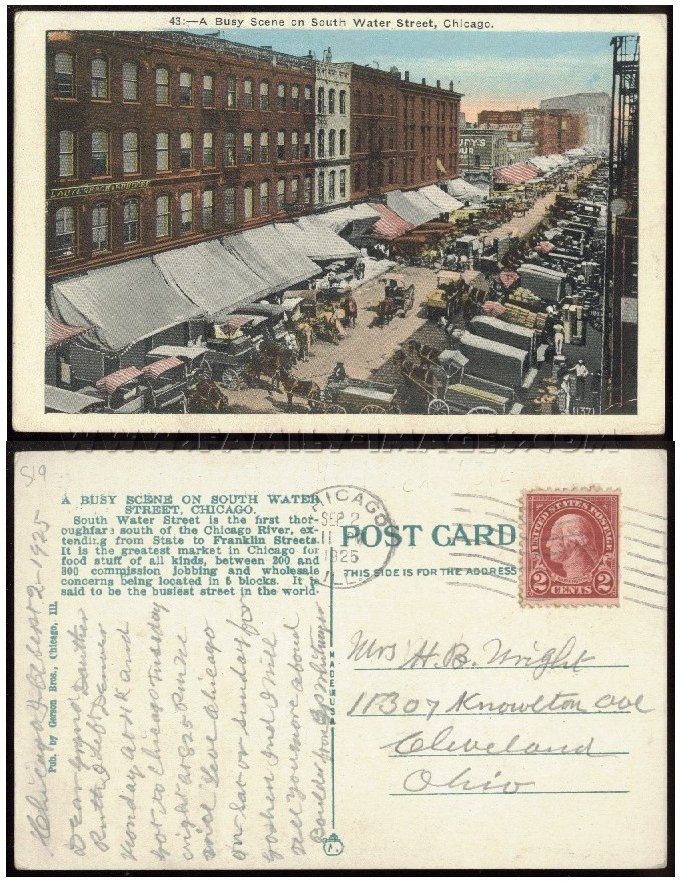 43:—A Busy Scene on South Water Street, Chicago.
(137)
WWW.FAMILY-IMAGES.COM
519
A BUSY SCENE ON SOUTH WATER
STREET, CHICAGO.
South Water Street is the first thor-
oughfare south of the Chicago River, ex-
tending from State to Franklin Streets.
It is the greatest market in Chicago for
food stuff of all kinds, between 200 and
300 commission jobbing and wholesale
concerns being located in 5 blocks. It is
said to be the busiest street in the world.
Pub. by Gerson Bros., Chicago, Ill.
CHICAGO
SEP 2
11
1925
ILL.
POST CARD
THIS SIDE IS FOR THE ADDRESS
UNITED STATES POSTAGE
2 2
CENTS
MADE IN U.S.A.
Mrs H. B. Wright
11307 Knowlton Ave
Cleveland
Ohio
Chicago Ill Sept 2-1925
Dear Grand Daughter
Ruth I left Denver
Monday at 4 PK and
got to Chicago Tuesday
night at 8 25 P.M. We
will leave Chicago
on Sat or Sunday for
Goshen and I will
tell you more about
Boulder from